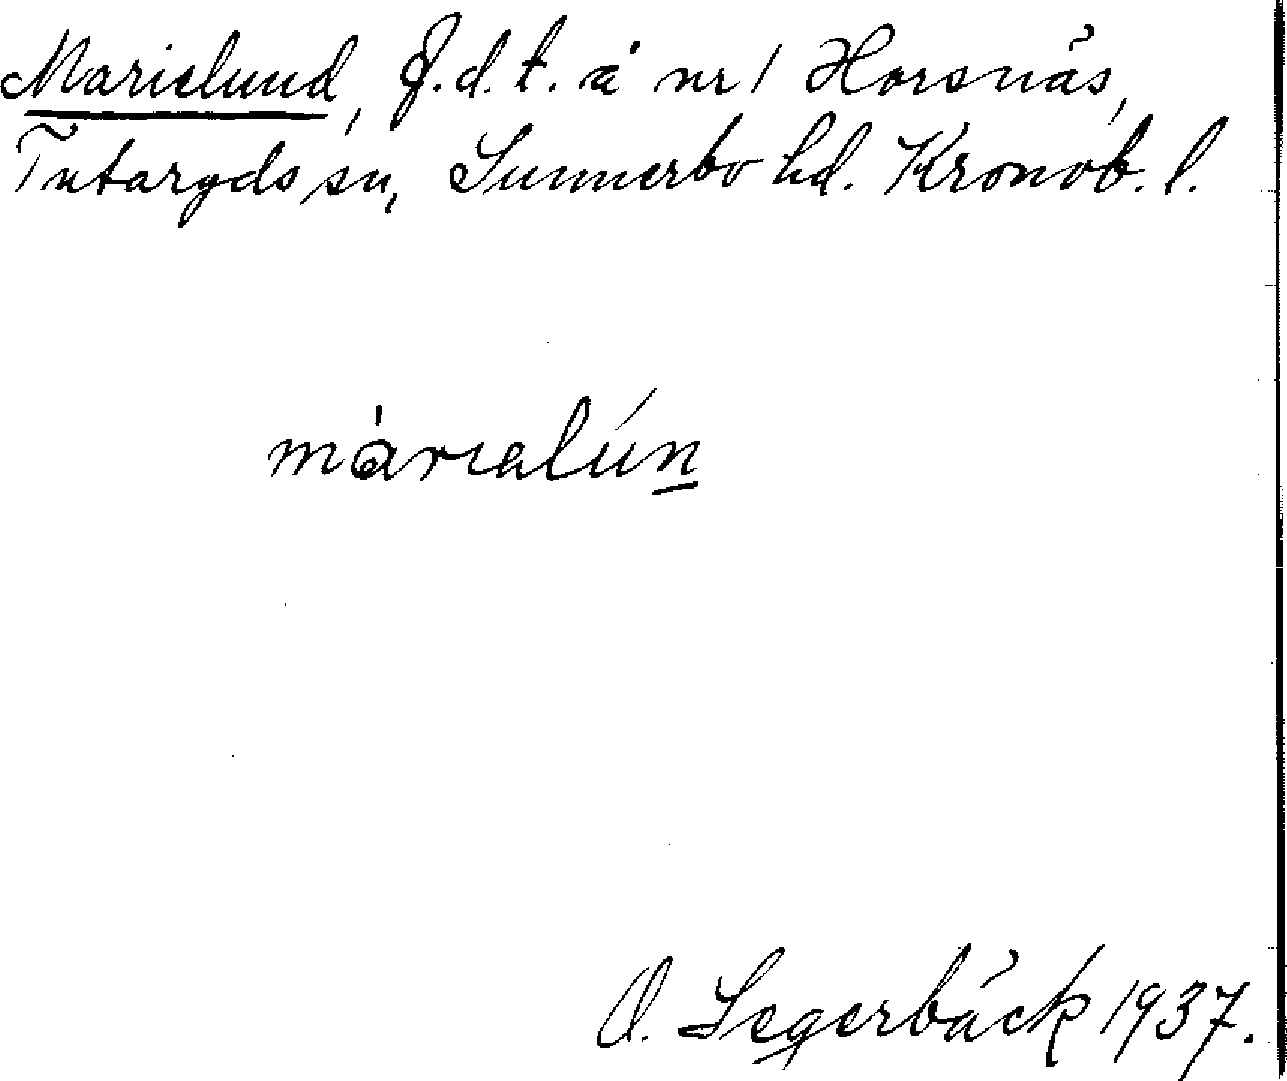 Marielund, f.d.t. å nr 1 Horsnäs,
Tutaryds sn, Sunnerbo hd. Kronob. l.
màrıalún
O. Segerbäck 1937.